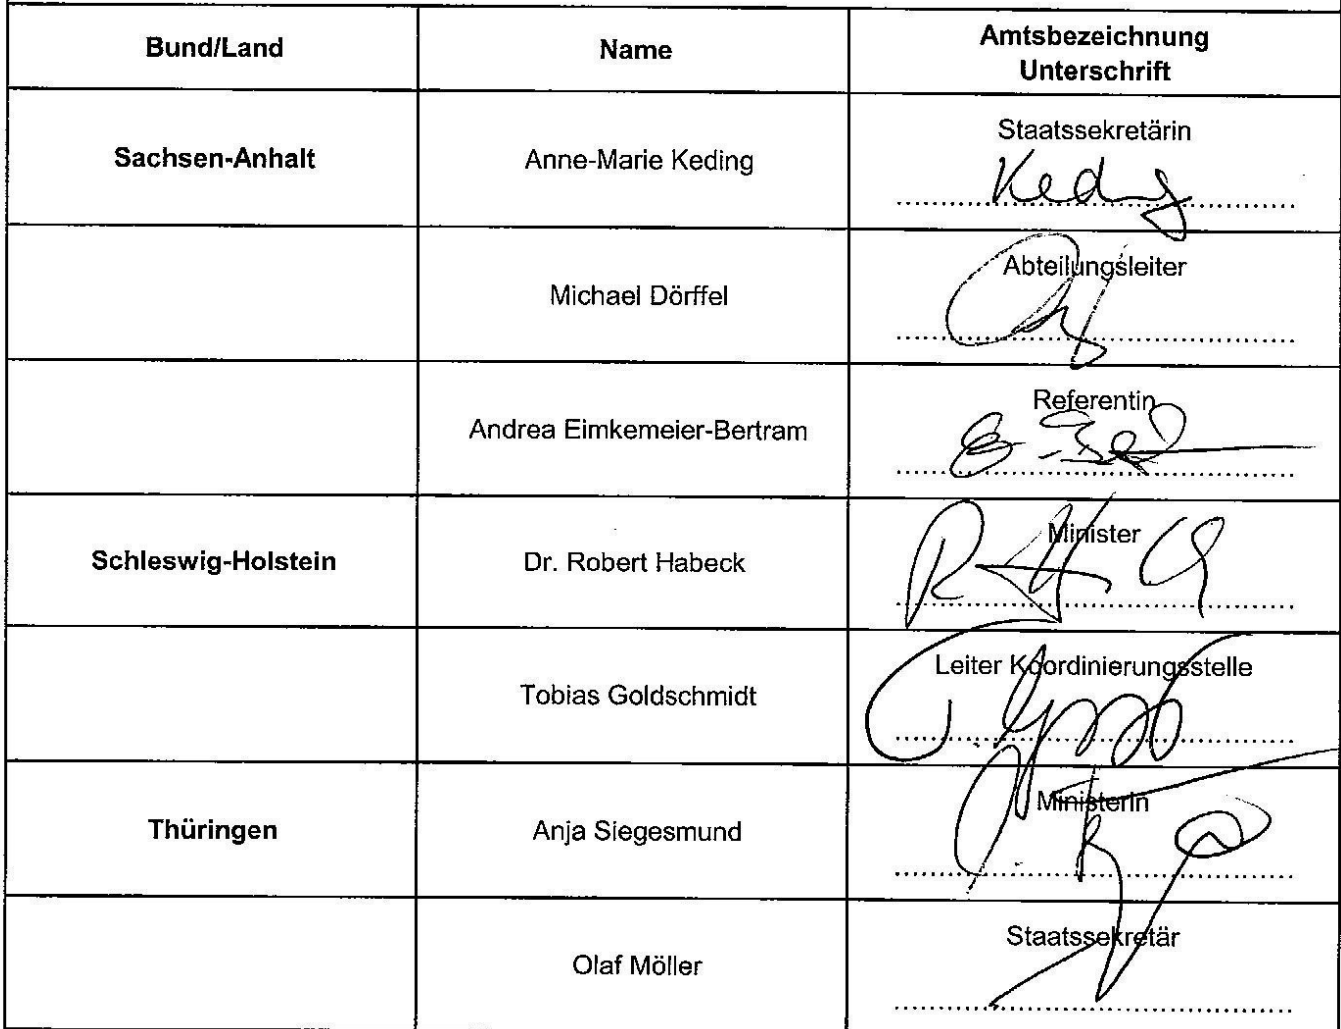 Bund/Land
Name
Amtsbezeichnung
Unterschrift
Sachsen-Anhalt
Anne-Marie Keding
Staatssekretärin
Keding
Michael Dörffel
Abteilungsleiter
Andrea Eimkemeier-Bertram
Referentin
Schleswig-Holstein
Dr. Robert Habeck
Minister
Tobias Goldschmidt
Leiter Koordinierungsstelle
Thüringen
Anja Siegesmund
Ministerin
Olaf Möller
Staatssekretär